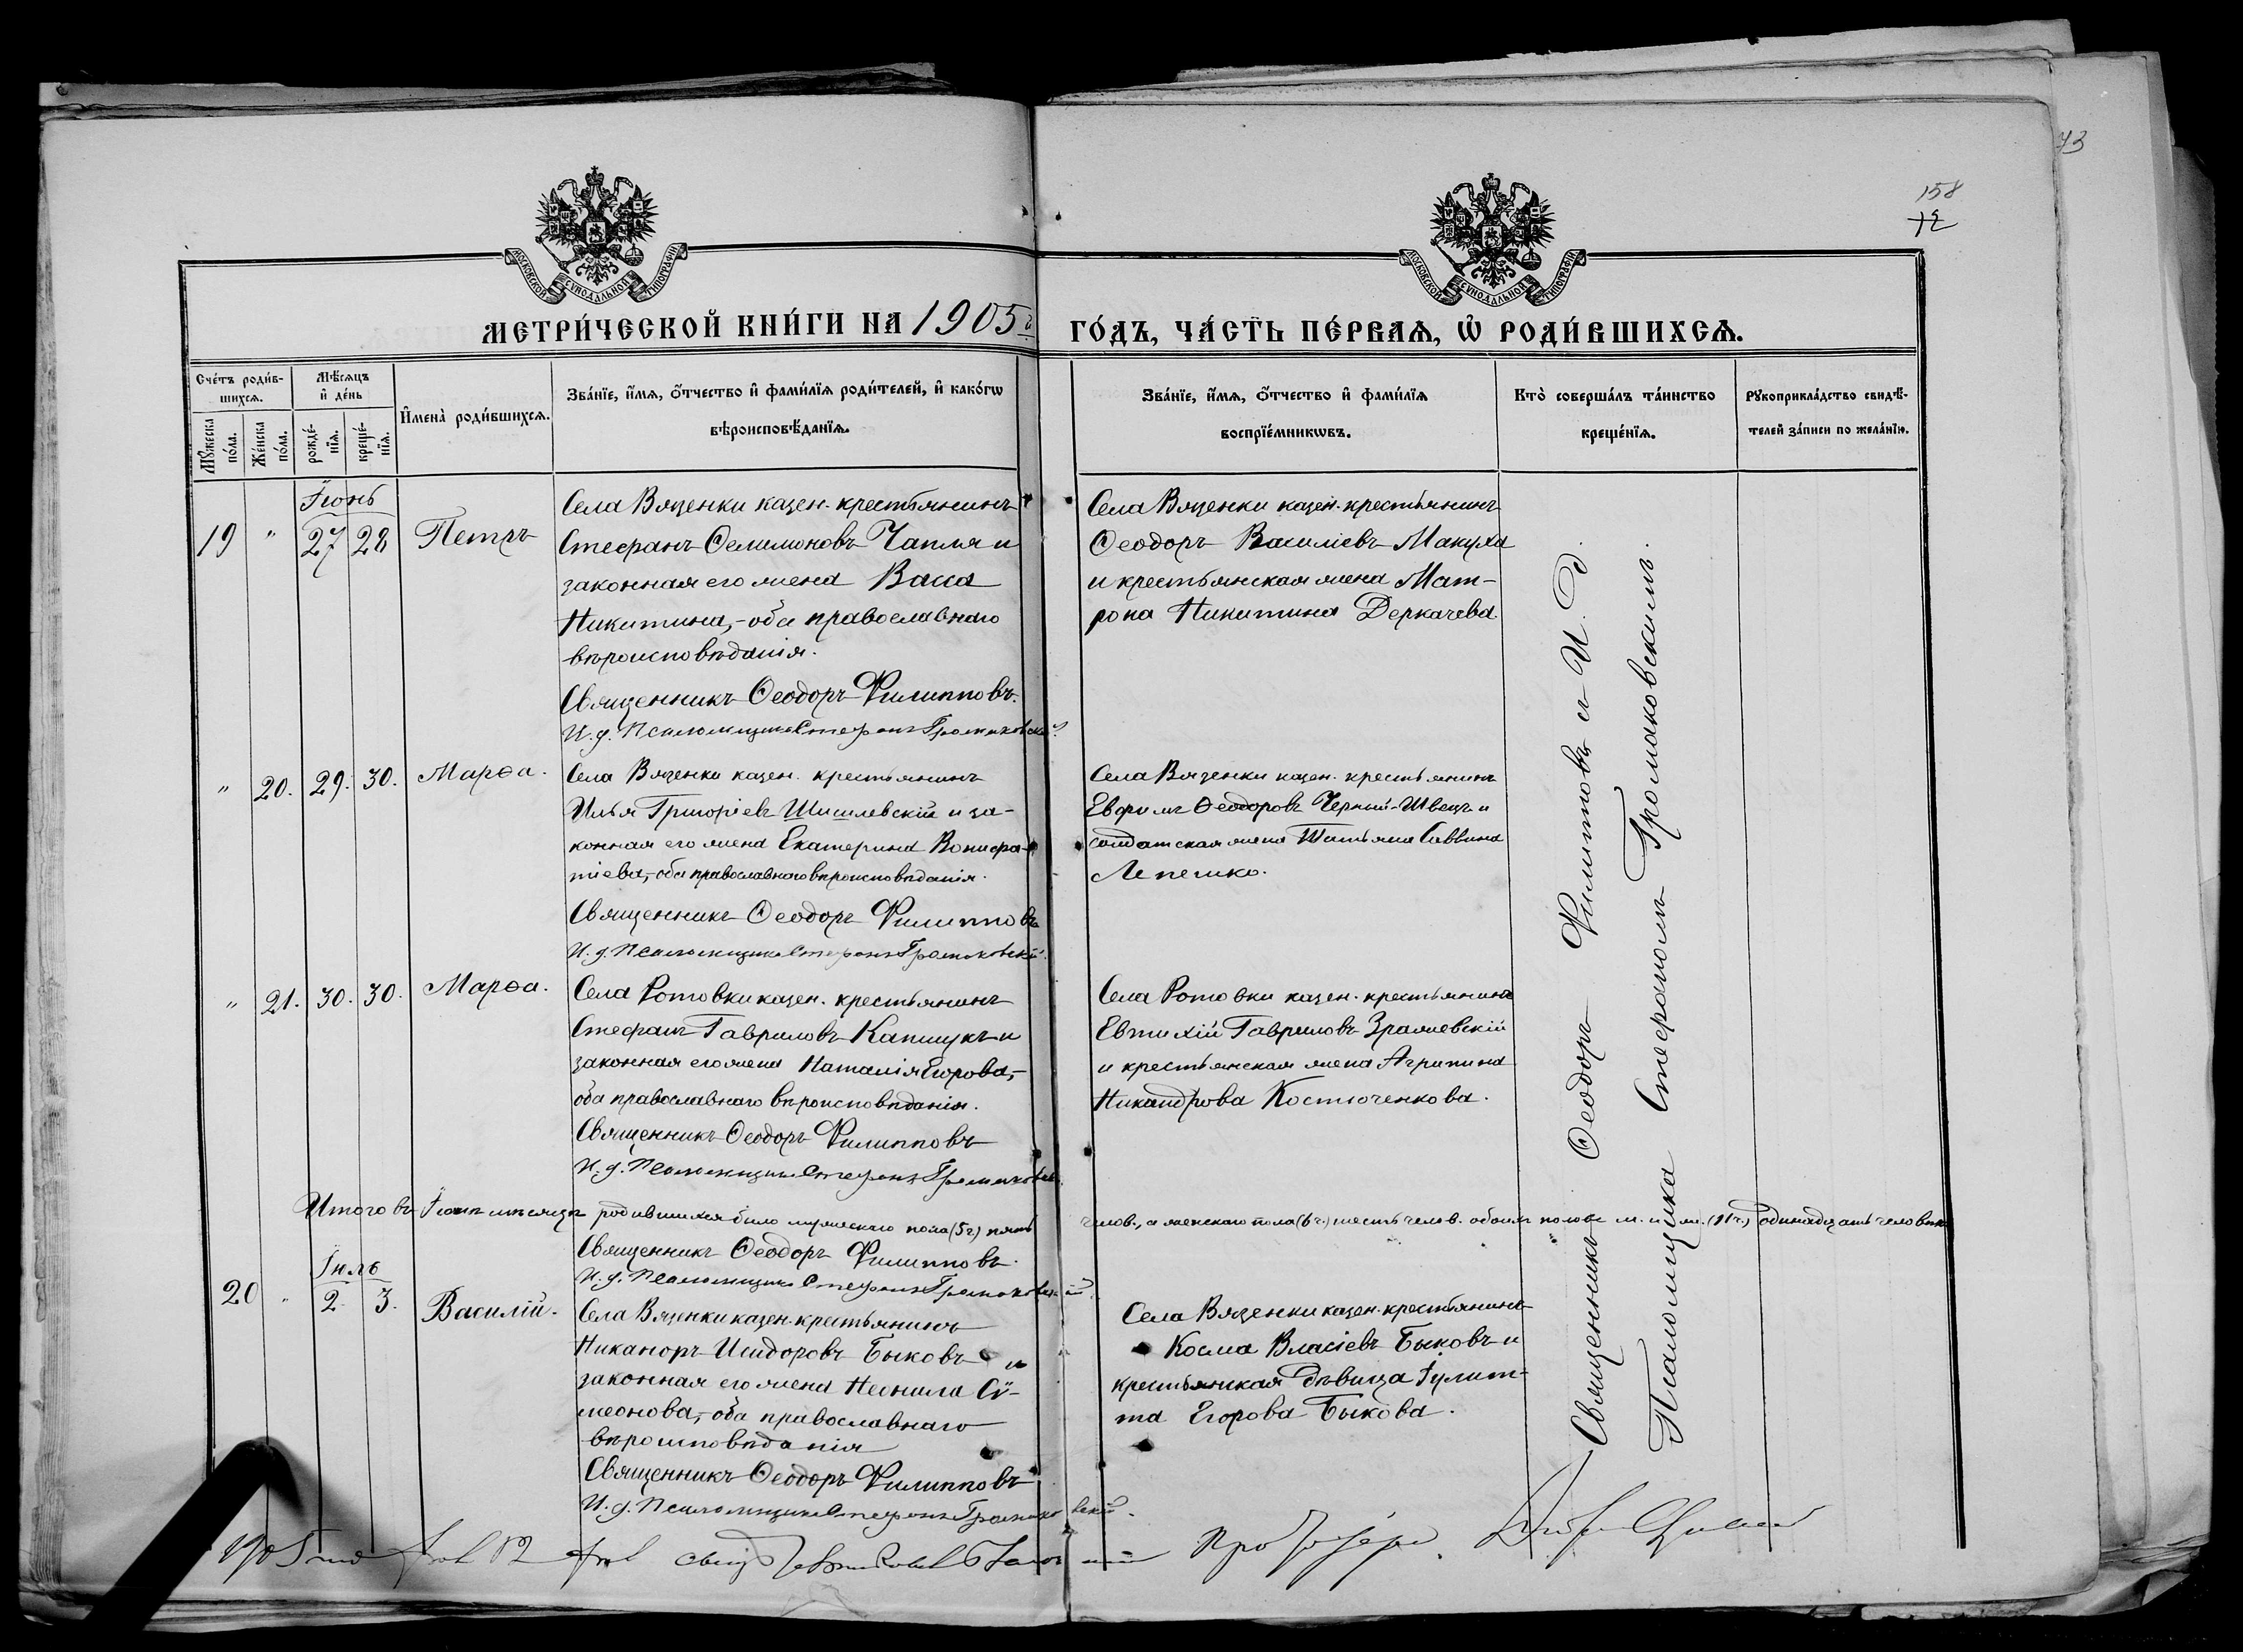 73
158
МОСКОВСКОЙ СѴНОДАЛЬНОЙ ТИПОГРАФІИ
МОСКОВСКОЙ СѴНОДАЛЬНОЙ ТИПОГРАФІИ
МЕТРИ́ЧЕСКОЙ КНИ́ГИ НА 1905 г
ГО́ДЪ, ЧА́СТЬ ПЕ́РВАѦ, Ѡ РОДИ́ВШИХСѦ.
Сче́тъ роди́в-
шихсѧ.
Мѣ́сѧцъ
и де́нь
Мꙋжеска по́ла.
Же́нска по́ла.
рожде́-
нїѧ.
креще́-
нїѧ.
Имена̀ роди́вшихсѧ.
Зва́нїе, и́мѧ, о́тчество и фами́лїѧ роди́телей, и како́гѡ
вѣроисповѣ́данїѧ.
Зва́нїе, и́мѧ, о́тчество и фами́лїѧ
воспрїе́мникѡвъ.
Кто̀ соверша́лъ та́инство
креще́нїѧ.
Рꙋкоприкла́дство свидѣ́-
телей за́писи по жела́нїю.
Іюнь
19 " 27 28 Петръ
Села Вяzенки казен. крестьянинъ
Стефанъ Филимоновъ Чапля и
законная его жена Васса
Никитина,- оба православнаго
вѣроисповѣданія.
Священникъ Ѳеодоръ Филипповъ.
И. д. Псаломщика Стефанъ Громаковскій
Села Вязенки казен. крестьянинъ
Ѳеодоръ Василіевъ Макуха
и крестьянская жена Мат-
рона Никитина Деркачева
" 20. 29. 30. Марѳа.
Села Вязенки казен. крестьянинъ
Илья Григоріевъ Шишлевскій и за-
конная его жена Екатерина Вонифа-
тіева,- оба православнаго вѣроисповѣданія.
Священникъ Ѳеодоръ Филипповъ
И. д. Псаломщика Стефанъ Громаковскій.
Села Вязенки казен. крестьянинъ
Евфимъ Ѳеодоровъ Черный-Швецъ и
солдатская жена Татьяна Саввина
Лепешко.
" 21. 30. 30. Марѳа.
Села Ротовки казен. крестьянинъ
Стефанъ Гавриловъ Капшукъ и
законная его жена Наталія Егорова,-
оба православнаго вѣроисповѣданія.
Священникъ Ѳеодоръ Филипповъ
И. д. Псаломщика Стефанъ Громаковскій.
Села Ротовки казен. крестьянинъ
Евтихій Гавриловъ Зражевскій
и крестьянская жена Агрипина
Никандрова Костюченкова.
Итого въ Іюнѣ мѣсяцѣ родившихся было мужескаго пола (5 ч.) пять челов., а женскаго пола (6 ч.) шесть челов. обоихъ половъ м. и ж. (11 ч.) одинадцать человѣкъ
Священникъ Ѳеодоръ Филипповъ.
И. д. Псаломщика Стефанъ Громаковскій.
Іюль
20 " 2. 3. Василій.
Села Вязенки казен. крестьянинъ
Никаноръ Исидоровъ Быковъ и
законная его жена Неонила Сѵ-
меонова,- оба православнаго
вѣроисповѣданія
Священникъ Ѳеодоръ Филипповъ
И. д. Псаломщика Стефанъ Громаковскій.
Села Вязенки казен. крестьянинъ
Косма Власіевъ Быковъ и
крестьянская дѣвица Іулит-
та Егорова Быкова.
Священникъ Ѳеодоръ Филипповъ и И. д.
Псаломщика Стефаномъ Громаковскимъ.
1905 года